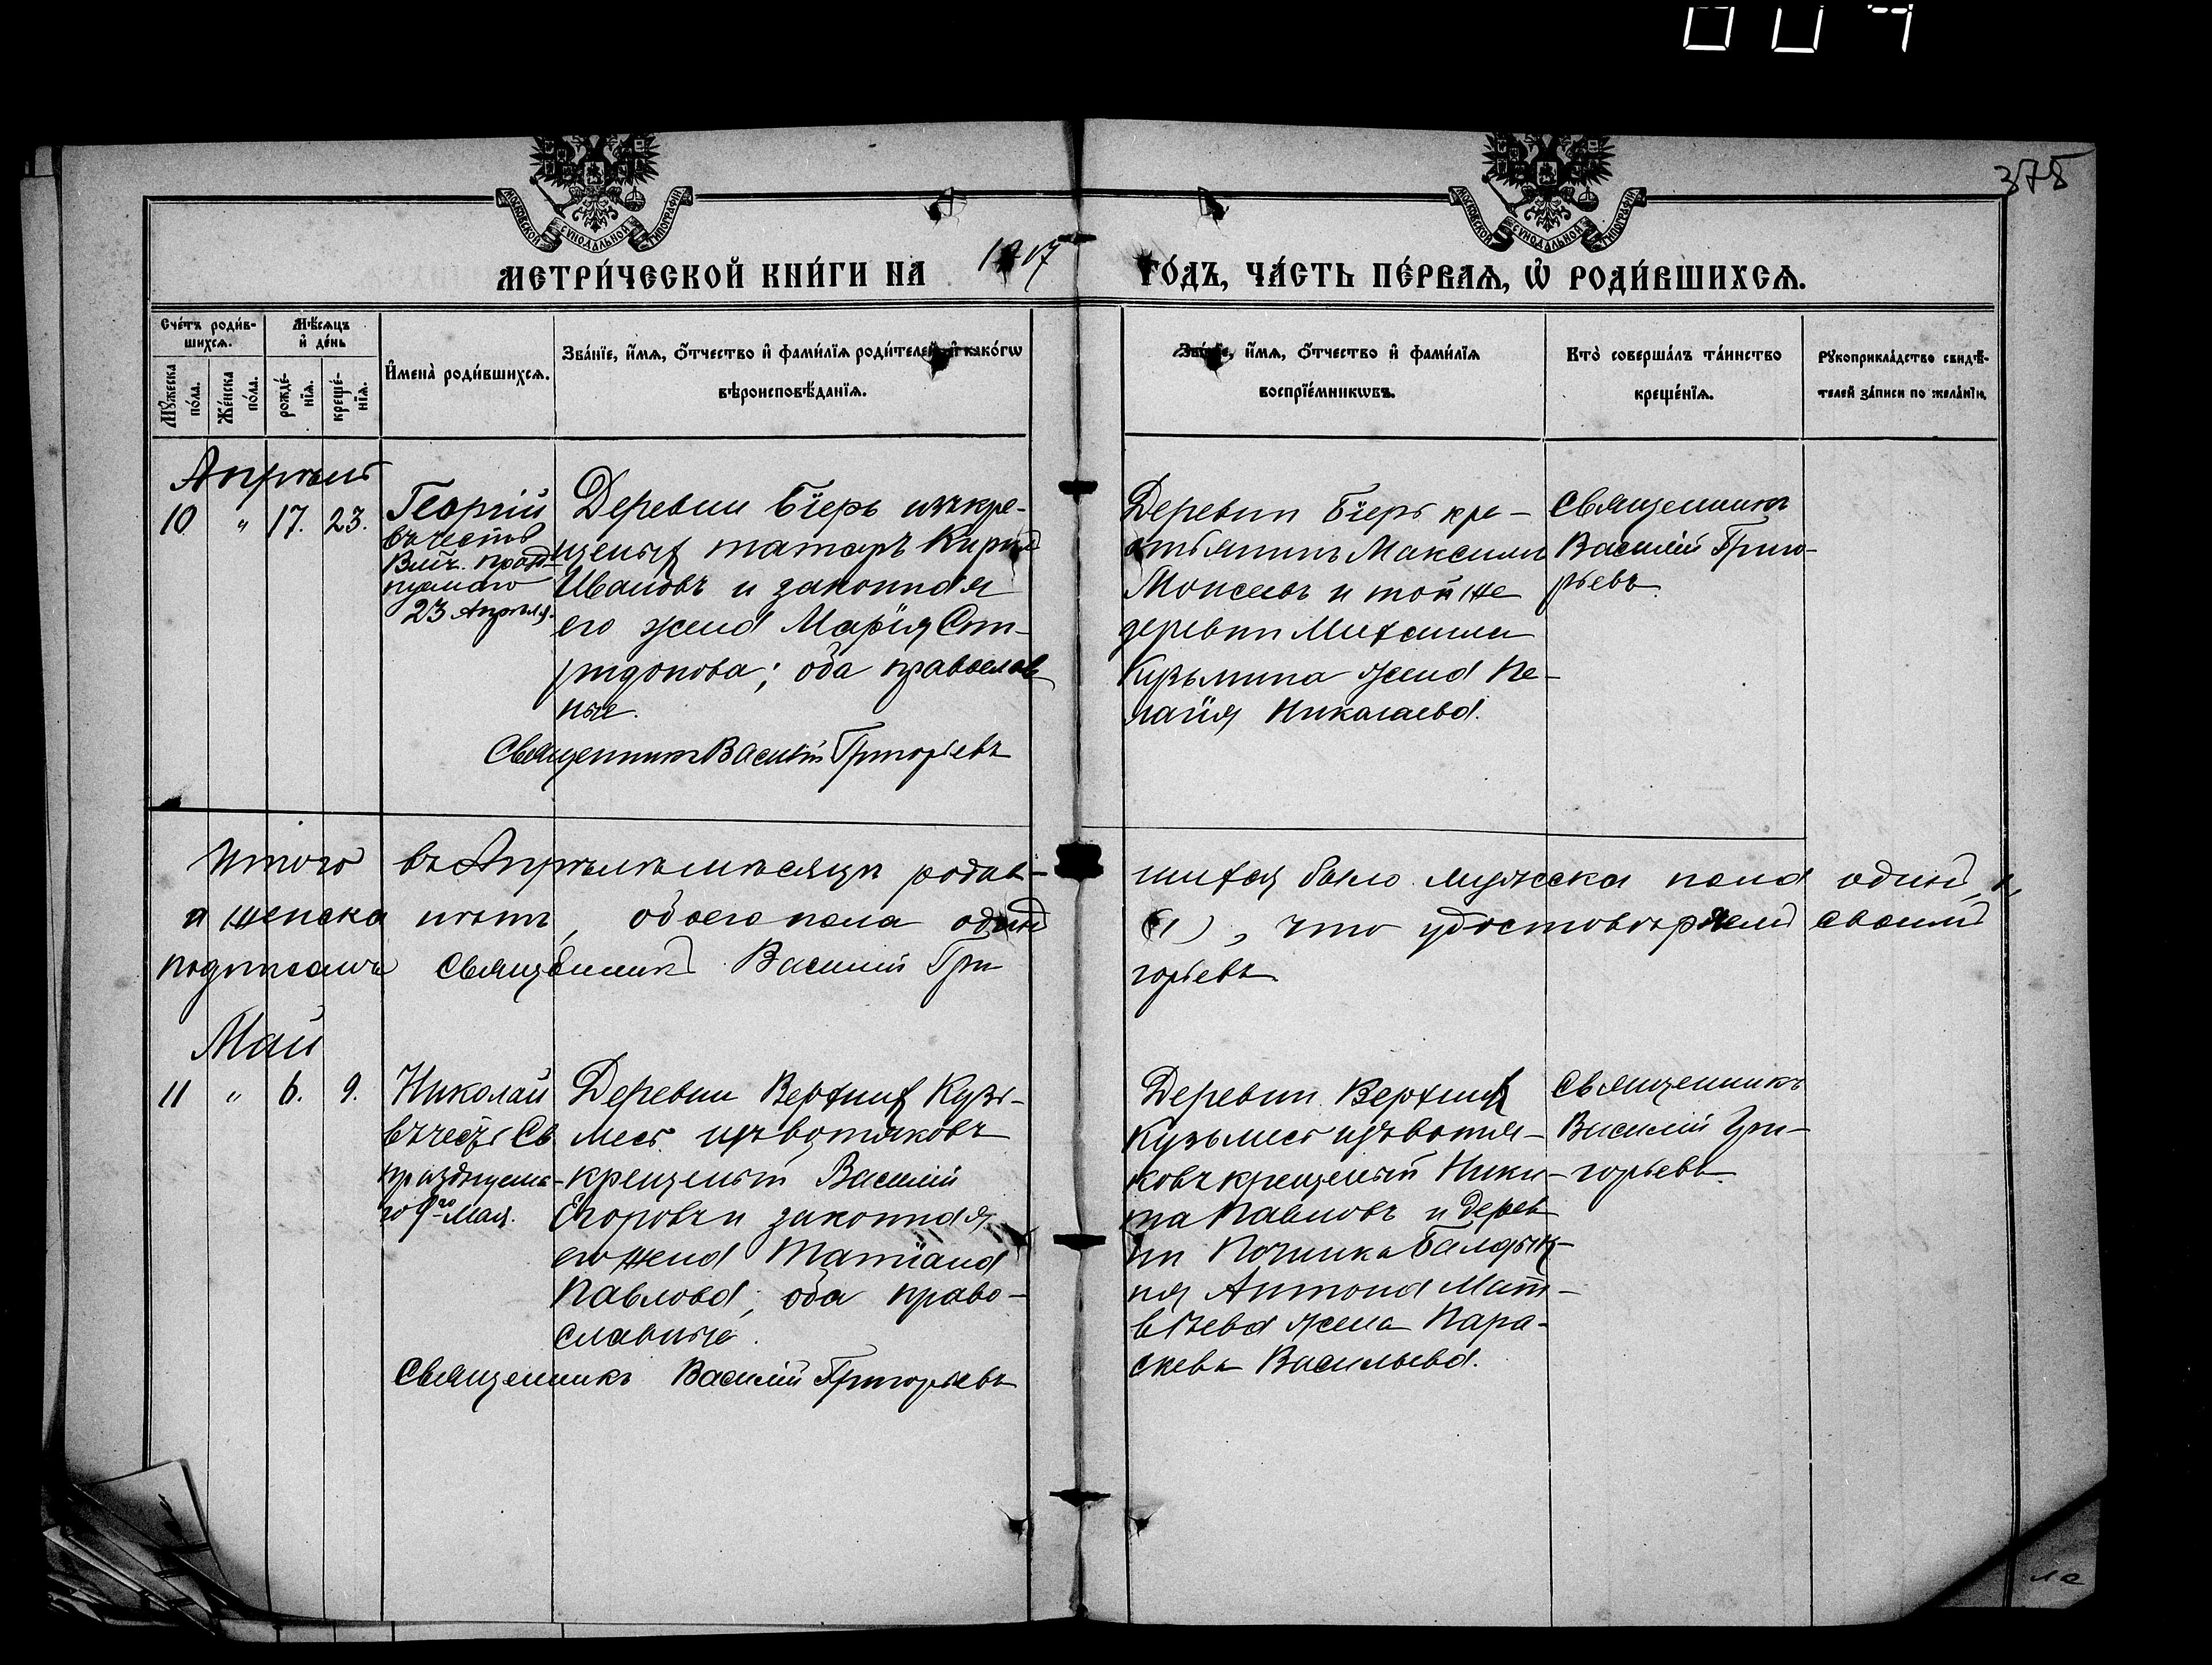 375
МОСКОВСКОЙ СѴНОДАЛЬНОЙ ТИПОГРАФІИ
МОСКОВСКОЙ СѴНОДАЛЬНОЙ ТИПОГРАФІИ
МЕТРИ́ЧЕСКОЙ КНИ́ГИ НА ГО́ДЪ, ЧА́СТЬ ПЕ́РВАѦ, Ѡ҆ РОДИ́ВШИХСѦ.
Сче́тъ роди́в-
шихсѧ.
Мꙋ́жеска по́ла.
Же́нска по́ла.
Мѣ́сѧцъ и҆ де́нь
рожде́-нїѧ.
креще́-нїѧ.
И҆мена̀ роди́вшихсѧ.
Зва́нїе, и҆́мѧ, ѻ҆́тчество и҆ фами́лїѧ роди́телей, и҆ како́гѡ
вѣроисповѣ́данїѧ.
Зва́нїе, и҆́мѧ, ѻ҆́тчество и҆ фами́лїѧ
воспрїе́мникѡвъ.
Кто̀ соверша́лъ та́инство
креще́нїѧ.
Рꙋкоприкла́дство свидѣ́-
телей за́писи по жела́нїю.
Апрѣль
10 " 17. 23.
Георгій
въ честь
Влмч. празд-
нуемаго
23 Апрѣля.
Деревни Біеръ изъ кре-
щеныхъ татаръ Кирилъ
Ивановъ и законная
его жена Марія Спи-
ридонова; оба православ-
ные.
Священникъ Василій Григорьевъ
Деревни Біеръ кре-
стьянинъ Максимъ
Моисеевъ и той же
деревни Михаила
Кузьмина жена Пе-
лагія Николаева.
Священникъ
Василій Григо-
рьевъ
Итого въ Апрѣлѣ мѣсяцѣ родив-
шихся было мужска пола одинъ,
а женска нѣтъ, обоего пола одинъ
(1), что удостовѣряемъ своимъ
подписомъ Священникъ Василій Гри
горьевъ
Май
11 " 6. 9.
Николай
въ честь Св.
празднуема-
го 9го Мая.
Деревни Верхнихъ Кузь-
месь изъ вотяковъ
крещеный Василій
Егоровъ и законная
его жена Татіана
Павлова; оба право-
славные.
Священникъ Василій Григорьевъ
Деревни Верхнихъ
Кузьмесь изъ вотя-
ковъ крещеный Ники-
та Павловъ и дерев
ни Починка
Антона Мат-
вѣева жена Пара-
скева Васильева.
Священникъ
Василій Гри-
горьевъ